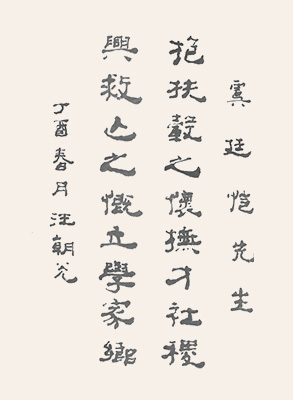 虞廷恺先生
抱扶轂之懷撫才社稷
興救亡之慨立學家鄉
丁酉春月汪朝